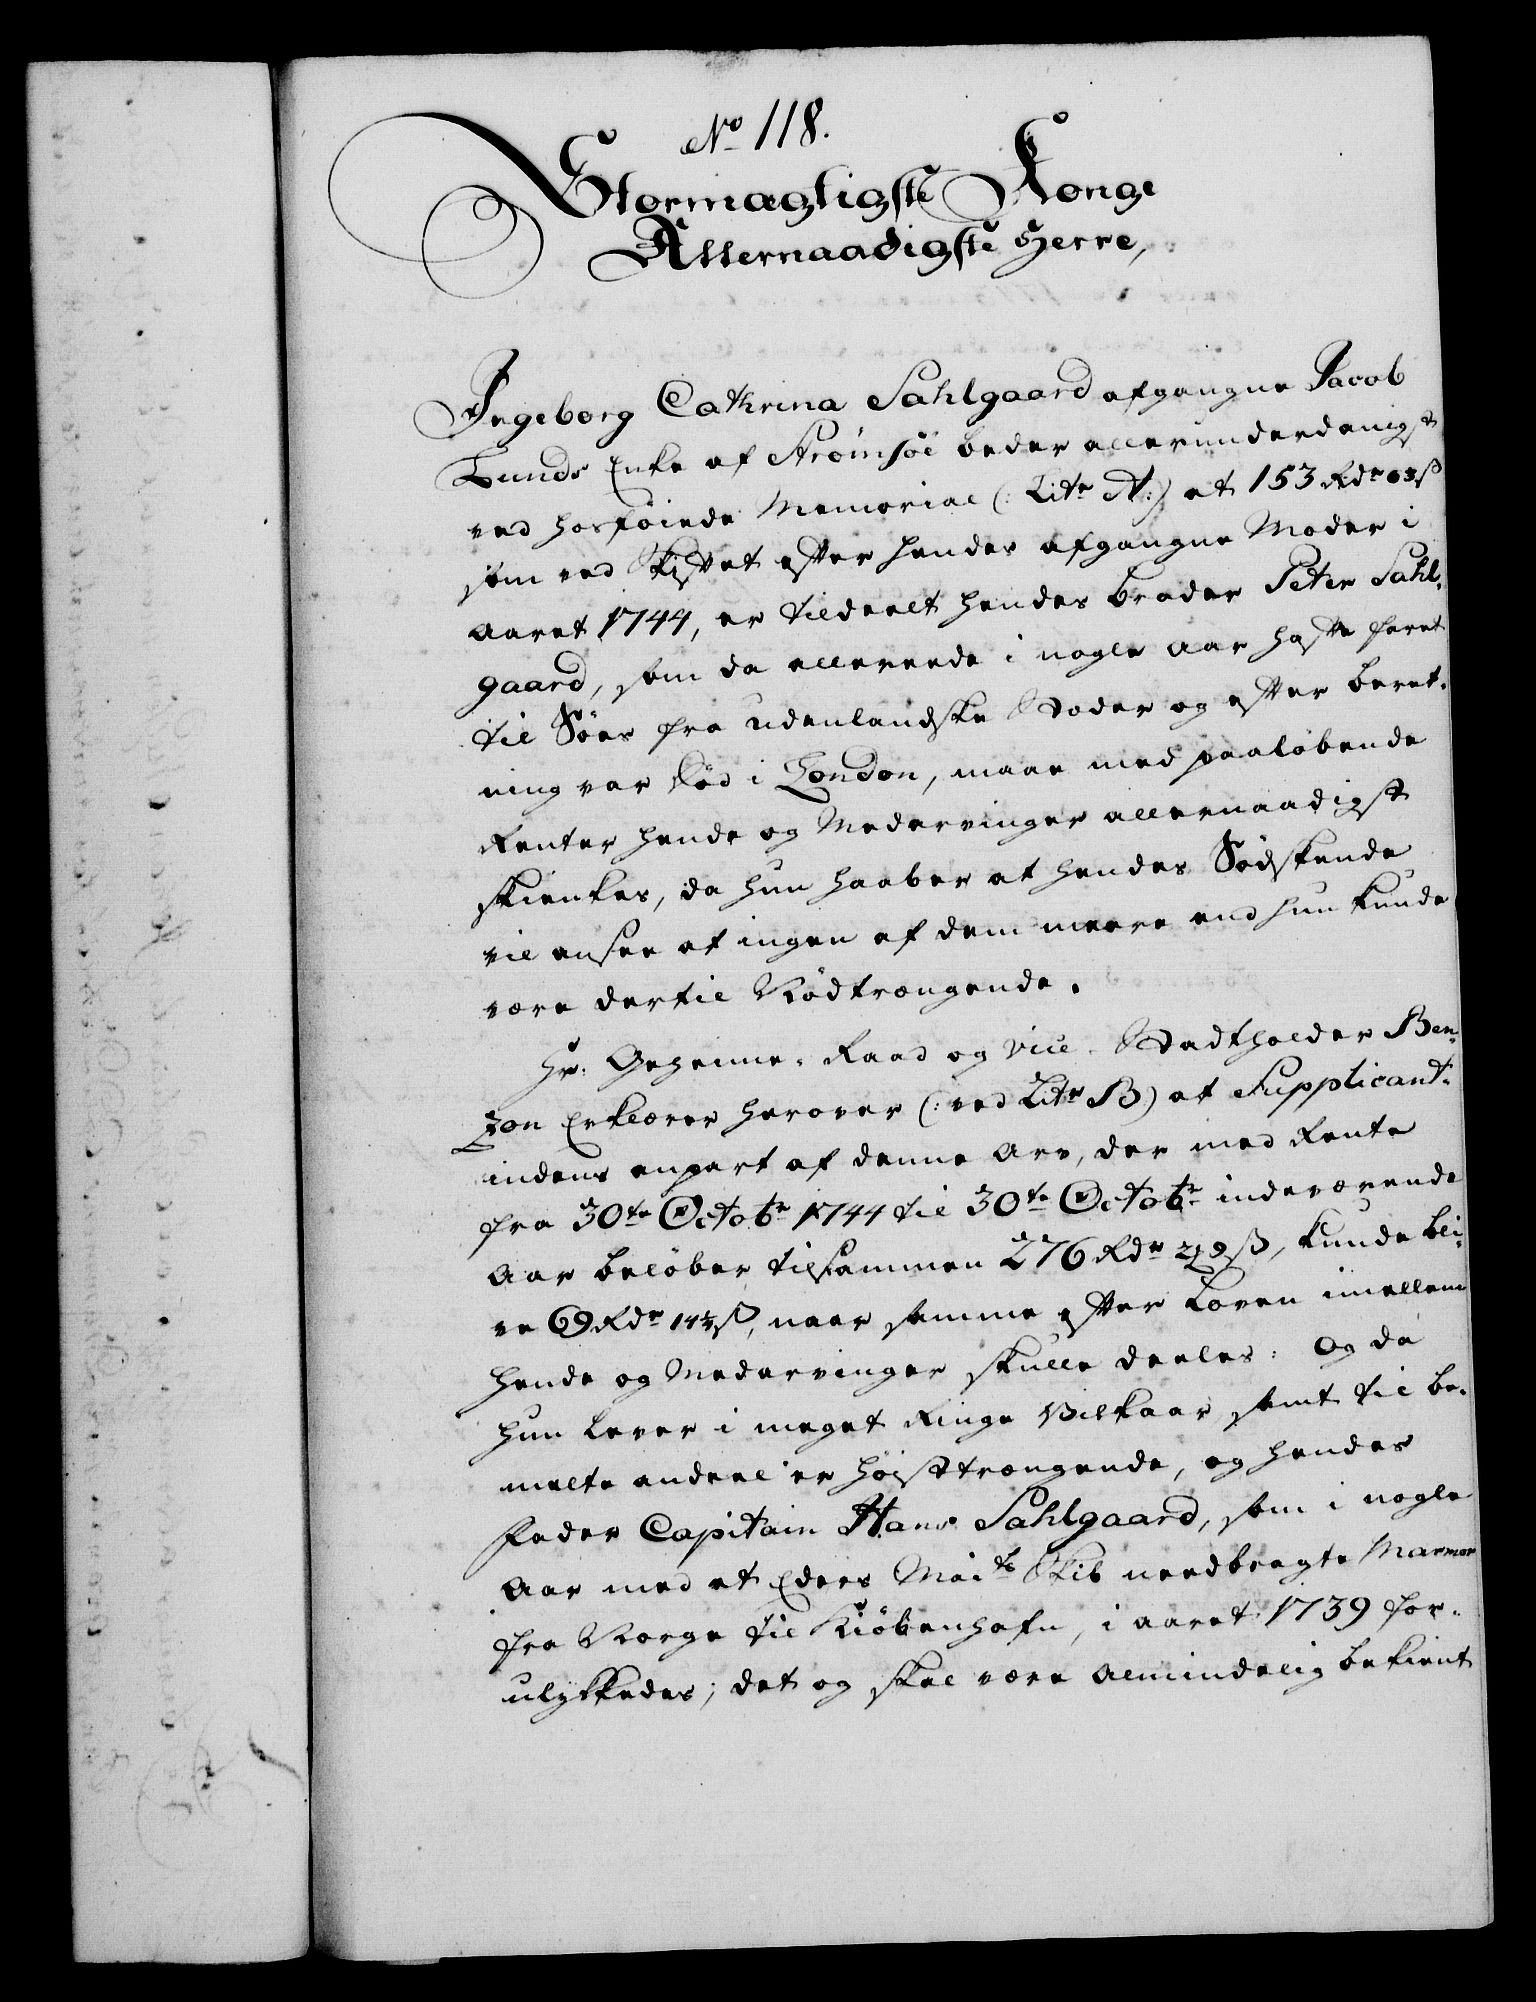 No 118.
Stormægtigste Konge
Allernaadigste Herre,
Ingeborg Cathrina Sahlgaard afgangne Jacob
Lunds Enke af Strømsöe beder allerunderdanigst
ved hosföiede Memorial (: Litr A:) at 153 Rdr 63 ß
som ved Skiftet efter hendes afgangne Moder i
Aaret 1744, er tildeelt hendes Broder Peter Sahl-
gaard, som da allereede i nogle Aar hafte faret
til Söes fra udenlandske Stæder og efter beret-
ning var död i London, maae med paalöbende
Renter hende og Medarvinger allernaadigst
skienkes, da hun haaber at hendes Södskende
vil ansee at ingen af dem meere end hun kunde
være dertil Nödtrængende.
Hr: Geheime-Raad og Vice-Stadtholder Ben-
zon Erklærer herover (: ved Litr B) at Supplicant-
indens anpart af denne Arv, der med Rente
fra 30te Octobr 1744 til 30te Octobr indeværende
Aar belöber tilsammen 276 Rdr 2 9 ß, kunde bli-
ve 69 Rdr 14½ ß, naar samme efter Loven imellem
hende og Medarvinger skulle deeles: Og da
hun lever i meget Ringe Vilkaar samt til be-
melte andeel er höist trængende, og hendes
Fader Capitain Hans Sahlgaard, som i nogle
Aar med et Eders Maits Skib needbragte Marmor
fra Norge til Kiöbenhafn, i aaret 1739 for-
ulykkedes; det og skal være Almindelig bekient